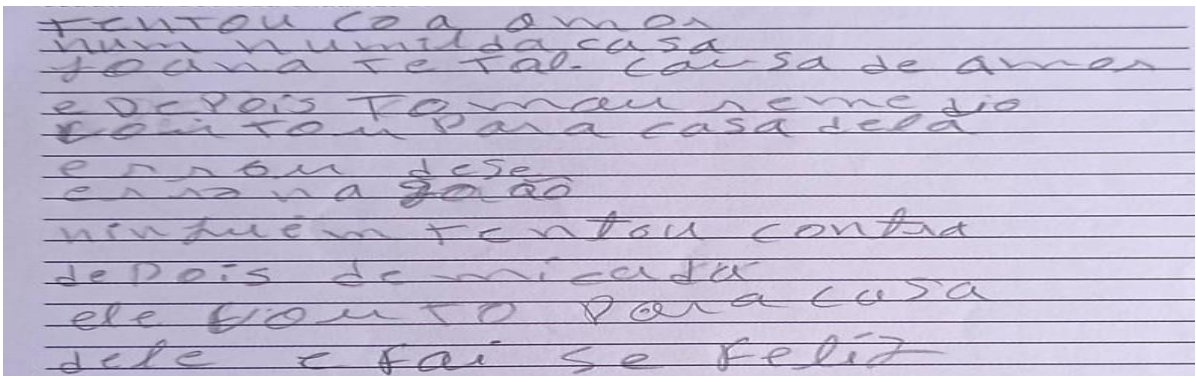 tentou coa amor
num numilda casa
joana te tal. causa de amor
e depois tomau remedio
voutou para casa dela
errou dese
erro na
ninguém tentou contra
depois de micada
ele vouto para casa
dele e fai se feliz